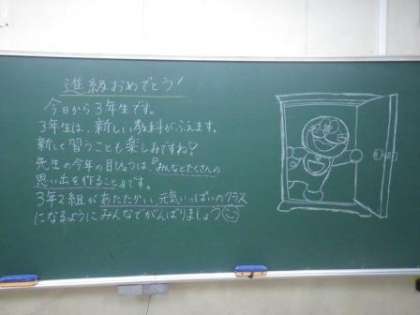 進級おめでとう!
今日から3年生です。
3年生は、新しい教科がふえます。
新しく習うことも楽しみですね♪
先生の今年の目ひょうは『みんなとたくさんの
思い出を作ること』です。
3年2組が あたたかい、元気いっぱいのクラス
になるようにみんなでがんばりましょう